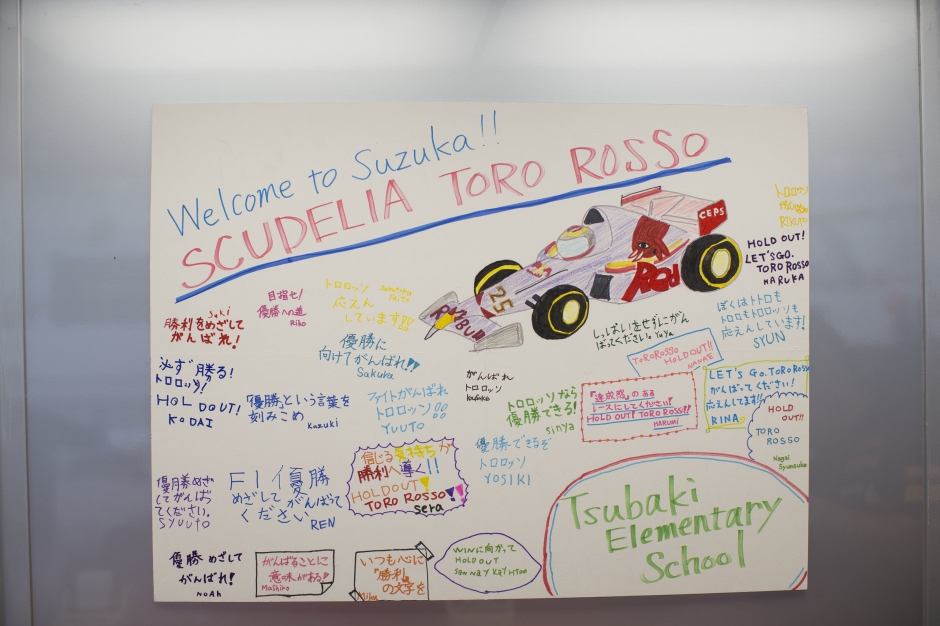 Welcome to Suzuka!!
SCUDELIA TORO ROSSO
CEPS
Red
25
トロロッソ
RIKUTO
HOLD OUT!
LET'S GO.
TORO ROSSO
HARUKA
Saki
勝利をめざして
がんばれ!
目指せ!
優勝への道
Riko
トロロッソ
応えん
しています!!
優勝に
向けてがんばれ!!
Sakura
しっぱいをせずにがん
ばってください。Yuya
ぼくはトトロも
トロもトロロッソも
応えんしています!
SYUN
TOROROSSO
HOLD OUT!!
NANAE
必ず勝る!
トロロッソ!
HOLDOUT!
KODAI
「優勝」という言葉を
刻みこめ
Kazuki
ファイトがんばれ
トロロッソ!!
YUUTO
がんばれ
トロロッソ
トロロッソなら
優勝できる!
sinya
「達成感」のある
レースにしてください!
HOLD OUT! TORO ROSSO!!
HARUMI
LET'S GO. TORO ROSSO
がんばってください!
応えんしてます!!
RINA
HOLD
OUT!!
TORO
ROSSO
Nagai
Syunsuke
優勝めざ
してがんばっ
てください。
SYUUTO
F1優勝
めざして がんばって
ください
REN
信じる気持ちが
勝利へ導く!!
HOLDOUT!
TORO ROSSO!!
sera
優勝できるぞ
トロロッソ
YOSIKI
Tsubaki
Elementary
School
優勝めざして
がんばれ!
NOAh
がんばることに
意味がある!
Mashiro
いつも心に
『勝利』
の文字を
WINに向かって
HOLD OUT